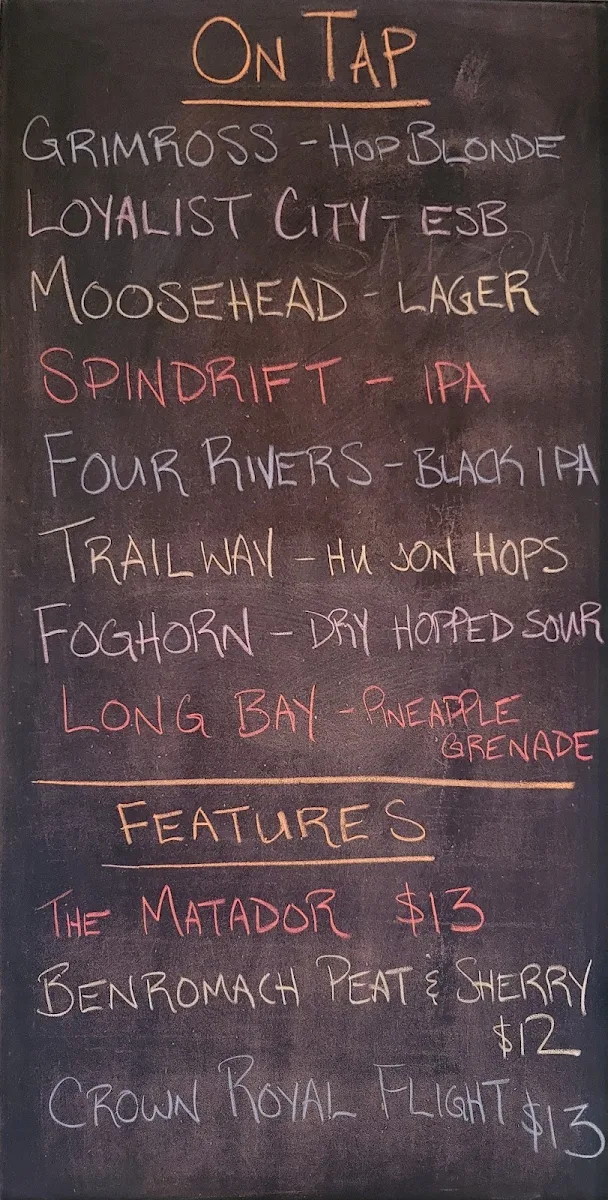 ON TAP
GRIMROSS - HOP BLONDE
LOYALIST CITY - ESB
MOOSEHEAD - LAGER
SPINDRIFT - IPA
FOUR RIVERS - BLACK IPA
TRAILWAY - HU JON HOPS
FOGHORN - DRY HOPPED SOUR
LONG BAY - PINEAPPLE
GRENADE
FEATURES
THE MATADOR $13
BENROMACH PEAT & SHERRY
$12
CROWN ROYAL FLIGHT $13